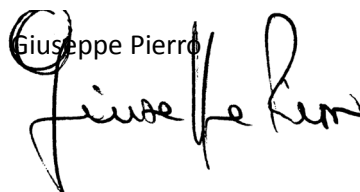 Giuseppe Pierro
Giuseppe Pierro